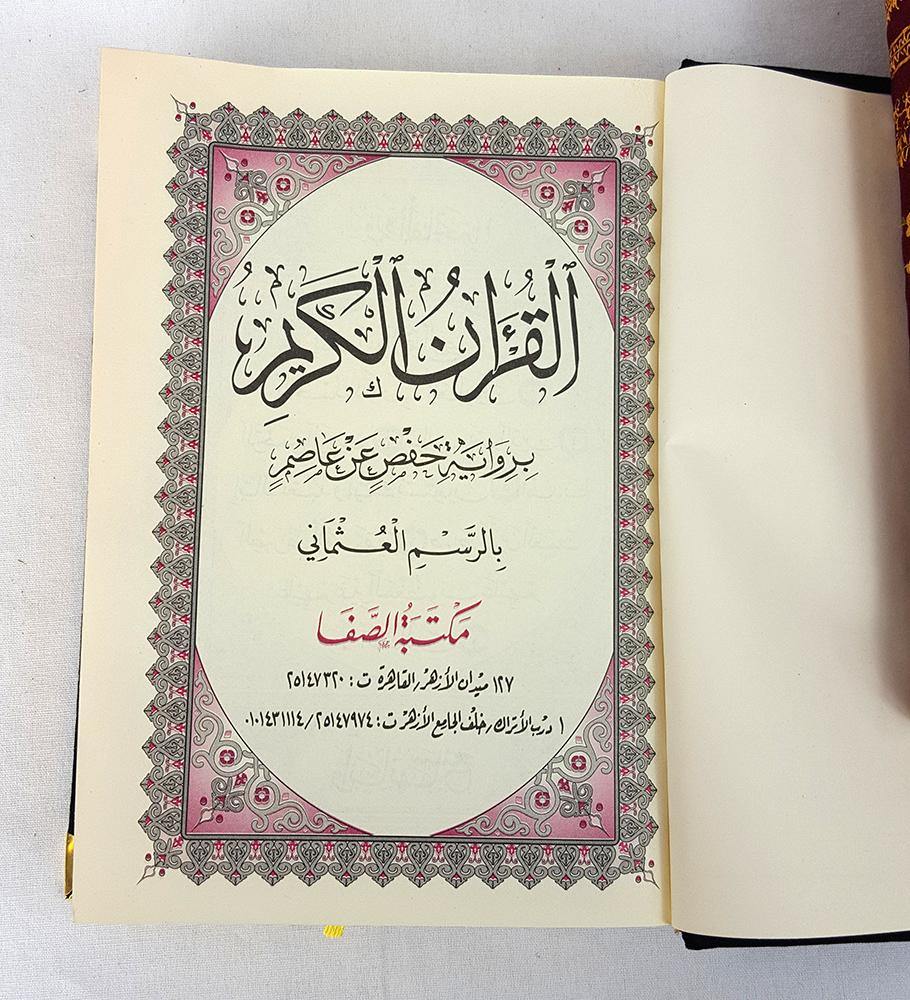 ٱلْقُرْءَانُ ٱلْكَرِيمُ
بِرِوَايَةِ حَفْصٍ عَنْ عَاصِمٍ
بِالرَّسْمِ الْعُثْمَانِي
مَكْتَبَةُ الصَّفَا
١٢٧ ميدان الأزهر/القاهرة ت: ٢٥١٤٧٣٢٠
١ درب الأتراك/خلف الجامع الأزهر ت: ٢٥١٤٧٩٧٤/٠١٠١٤٣١١١٤